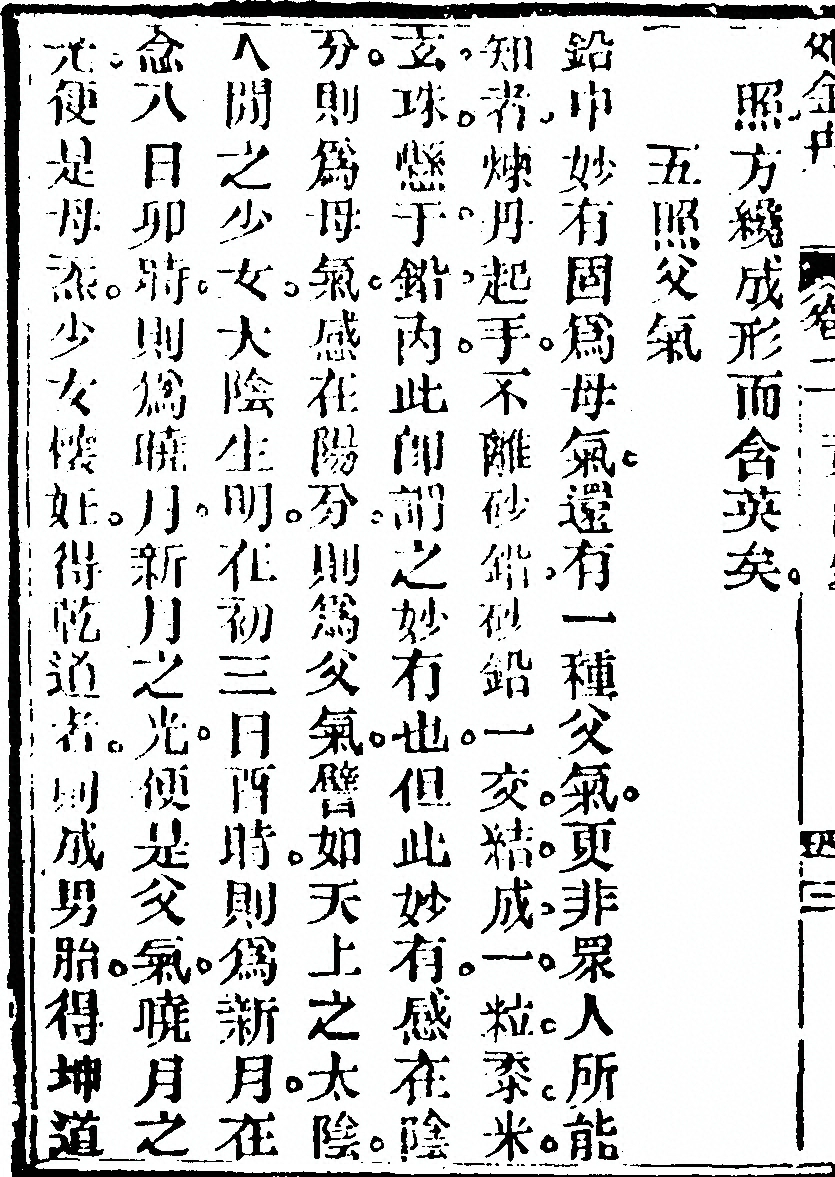 卷二
四三
照方纔成形而含英矣。
五照父氣
鉛中妙有固爲母氣。還有一種父氣。更非眾人所能
知者、煉丹起手。不離砂鉛、砂鉛一交。結成一粒黍米。
玄珠。懸于鉛內。此卽謂之妙有也。但此妙有。感在陰
分。則爲母氣。感在陽分。則爲父氣。譬如天上之太陰。
人間之少女。大陰生明。在初三日酉時。則爲新月。在
念八日卯時。則爲曉月。新月之光。便是父氣。曉月之
光。便是母炁。少女懷妊。得乾道者。則成男胎。得坤道